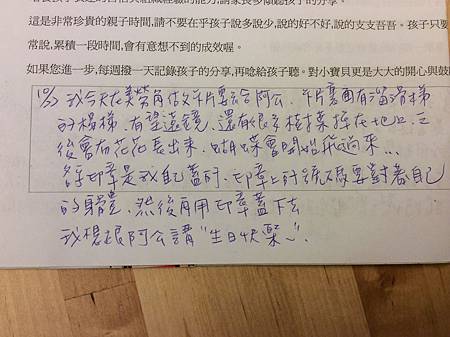 這是非常珍貴的親子時間,請不要在乎孩子說多說少,說的好不好,說的支支吾吾。孩子只要
常說,累積一段時間,會有意想不到的成效喔。
如果您進一步,每週撥一天記錄孩子的分享,再唸給孩子聽。對小寶貝更是大大的開心與鼓
我今天在美勞角做卡片要給阿公,卡片裏面有溜滑梯
的樓梯、有望遠鏡、還有很多樹葉掉在地上、之
後會有花花長出來、蝴蝶會開始飛過來...
印章是我自己蓋的、印章上的號碼要對著自己
的身體、然後再用印章蓋下去
我想跟阿公講“生日快樂”.